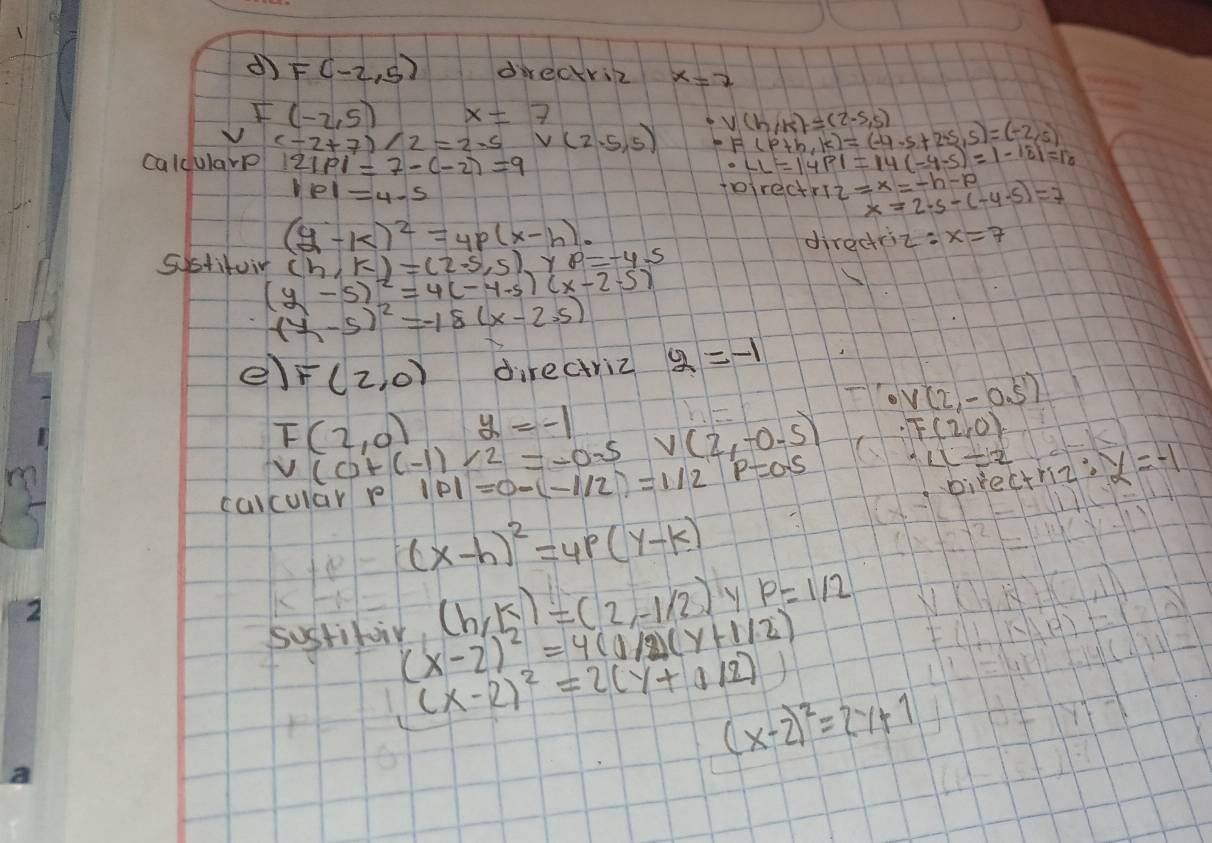 d) F(-2,5) directriz x=7
F(-2,5) x= 7
V (-2+7)/2=2.5 V(2.5,5)
calcularp |2|P|=7-(-2)=9
|P|=4.5
(y-k)²=4p(x-h).
Sustituir (h,k)=(2.5,5) y P=-4.5
(y-5)²=4(-4.5)(x-2.5)
(y-5)²=-18(x-2.5)
•V(h,k)=(2.5,5)
•F(p+h,k)=(-4.5+2.5,5)=(-2,5)
•LL=|4P|=|4(-4.5)=|-18|=18
•Directriz=x=-h-p
x=2.5-(-4.5)=7
directriz: x=7
e) F(2,0) directriz y=-1
F(2,0) y=-1
V(0+(-1)/2=-0.5 V(2,-0.5)
calcular p |P|=0-(-1/2)=1/2 P=0.5
(x-h)²=4P(y-k)
sustituir (h,k)=(2,-1/2) y P=1/2
(x-2)²=4(1/2)(y+1/2)
(x-2)²=2(y+1/2)
(x-2)²=2y+1
•V(2,-0.5)
•F(2,0)
•LL=2
•Directriz: y=-1
1
2
a